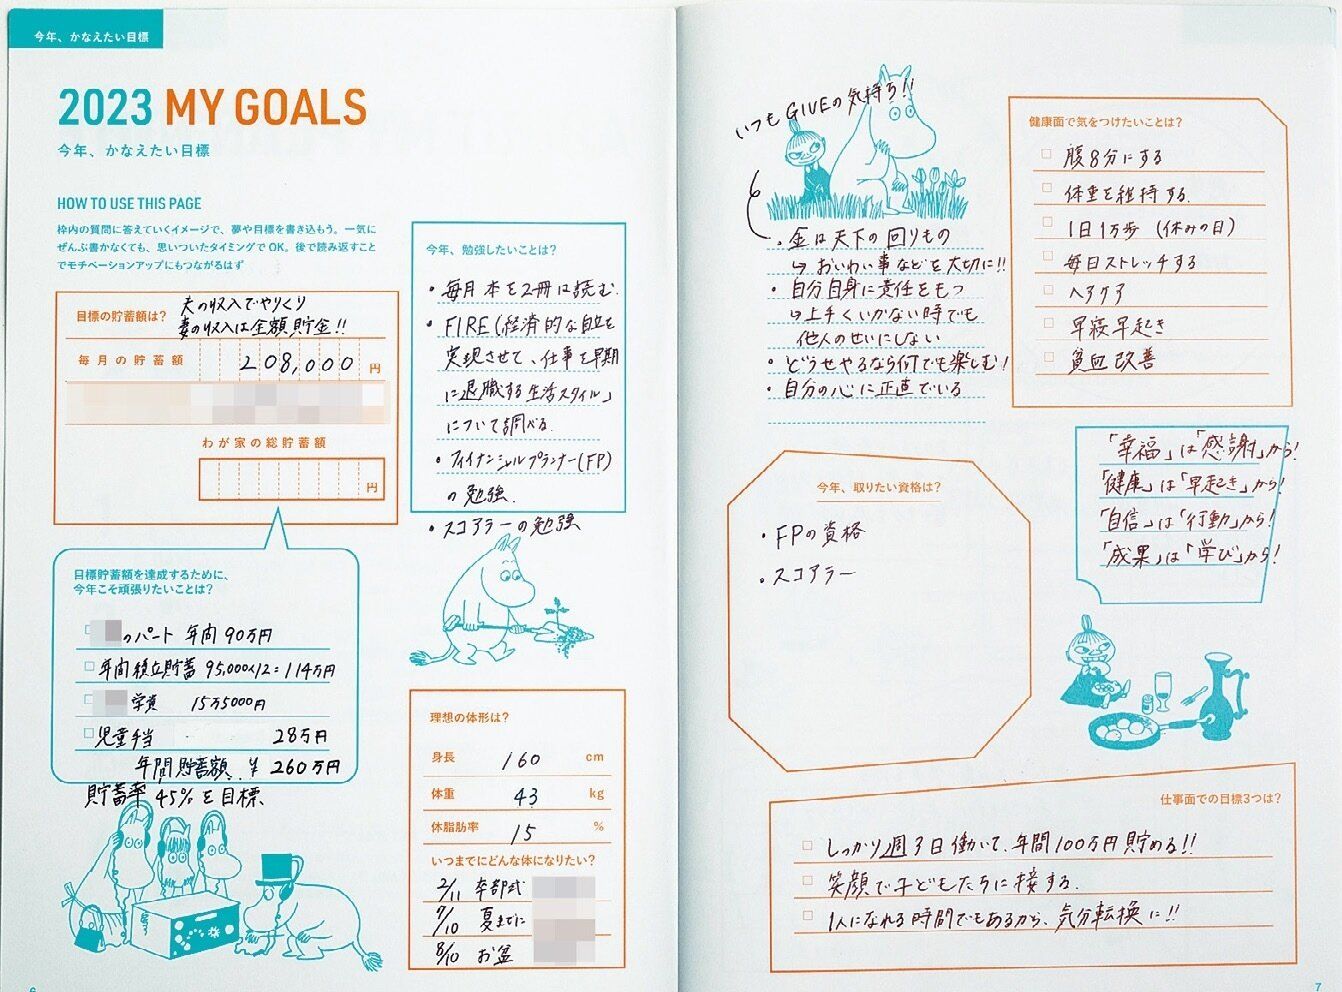 今年、かなえたい目標
2023 MY GOALS
今年、かなえたい目標
HOW TO USE THIS PAGE
枠内の質問に答えていくイメージで、夢や目標を書き込もう。一気に
ぜんぶ書かなくても、思いついたタイミングでOK。後で読み返すこと
でモチベーションアップにもつながるはず
夫の収入でやりくり
目標の貯蓄額は? 妻の収入は全額貯金!!
毎月の貯蓄額 208,000 円
わが家の総貯蓄額
円
目標貯蓄額を達成するために、
今年こそ頑張りたいことは?
のパート 年間90万円
年間積立貯蓄 95,000×12=114万円
学資 15万5000円
児童手当 28万円
年間貯蓄額 ¥260万円
貯蓄率 45%を目標、
今年、勉強したいことは?
・毎月本を2冊は読む.
・FIRE(経済的な自立を
実現させて、仕事を早期
に退職する生活スタイル」
について調べる.
・ファイナンシャルプランナー(FP)
の勉強.
・スコアラーの勉強
理想の体形は?
身長 160 cm
体重 43 kg
体脂肪率 15 %
いつまでにどんな体になりたい?
2/11 卒部式
7/10 夏までに
8/10 お盆
6
いつもGIVEの気持ち!!
・金は天下の回りもの
↳おいわい事などを大切に!!
・自分自身に責任をもつ
↳上手くいかない時でも
他人のせいにしない
・どうせやるなら何でも楽しむ!
・自分の心に正直でいる
健康面で気をつけたいことは?
腹8分にする
体重を維持する.
1日1万歩(休みの日)
毎日ストレッチする
ヘアケア
早寝早起き
貧血改善
今年、取りたい資格は?
・FPの資格
・スコアラー
「幸福」は「感謝」から!
「健康」は「早起き」から!
「自信」は「行動」から!
「成果」は「学び」から!
仕事面での目標3つは?
しっかり週3日働いて、年間100万円貯める!!
笑顔で子どもたちに接する.
1人になれる時間でもあるから、気分転換に!!
7